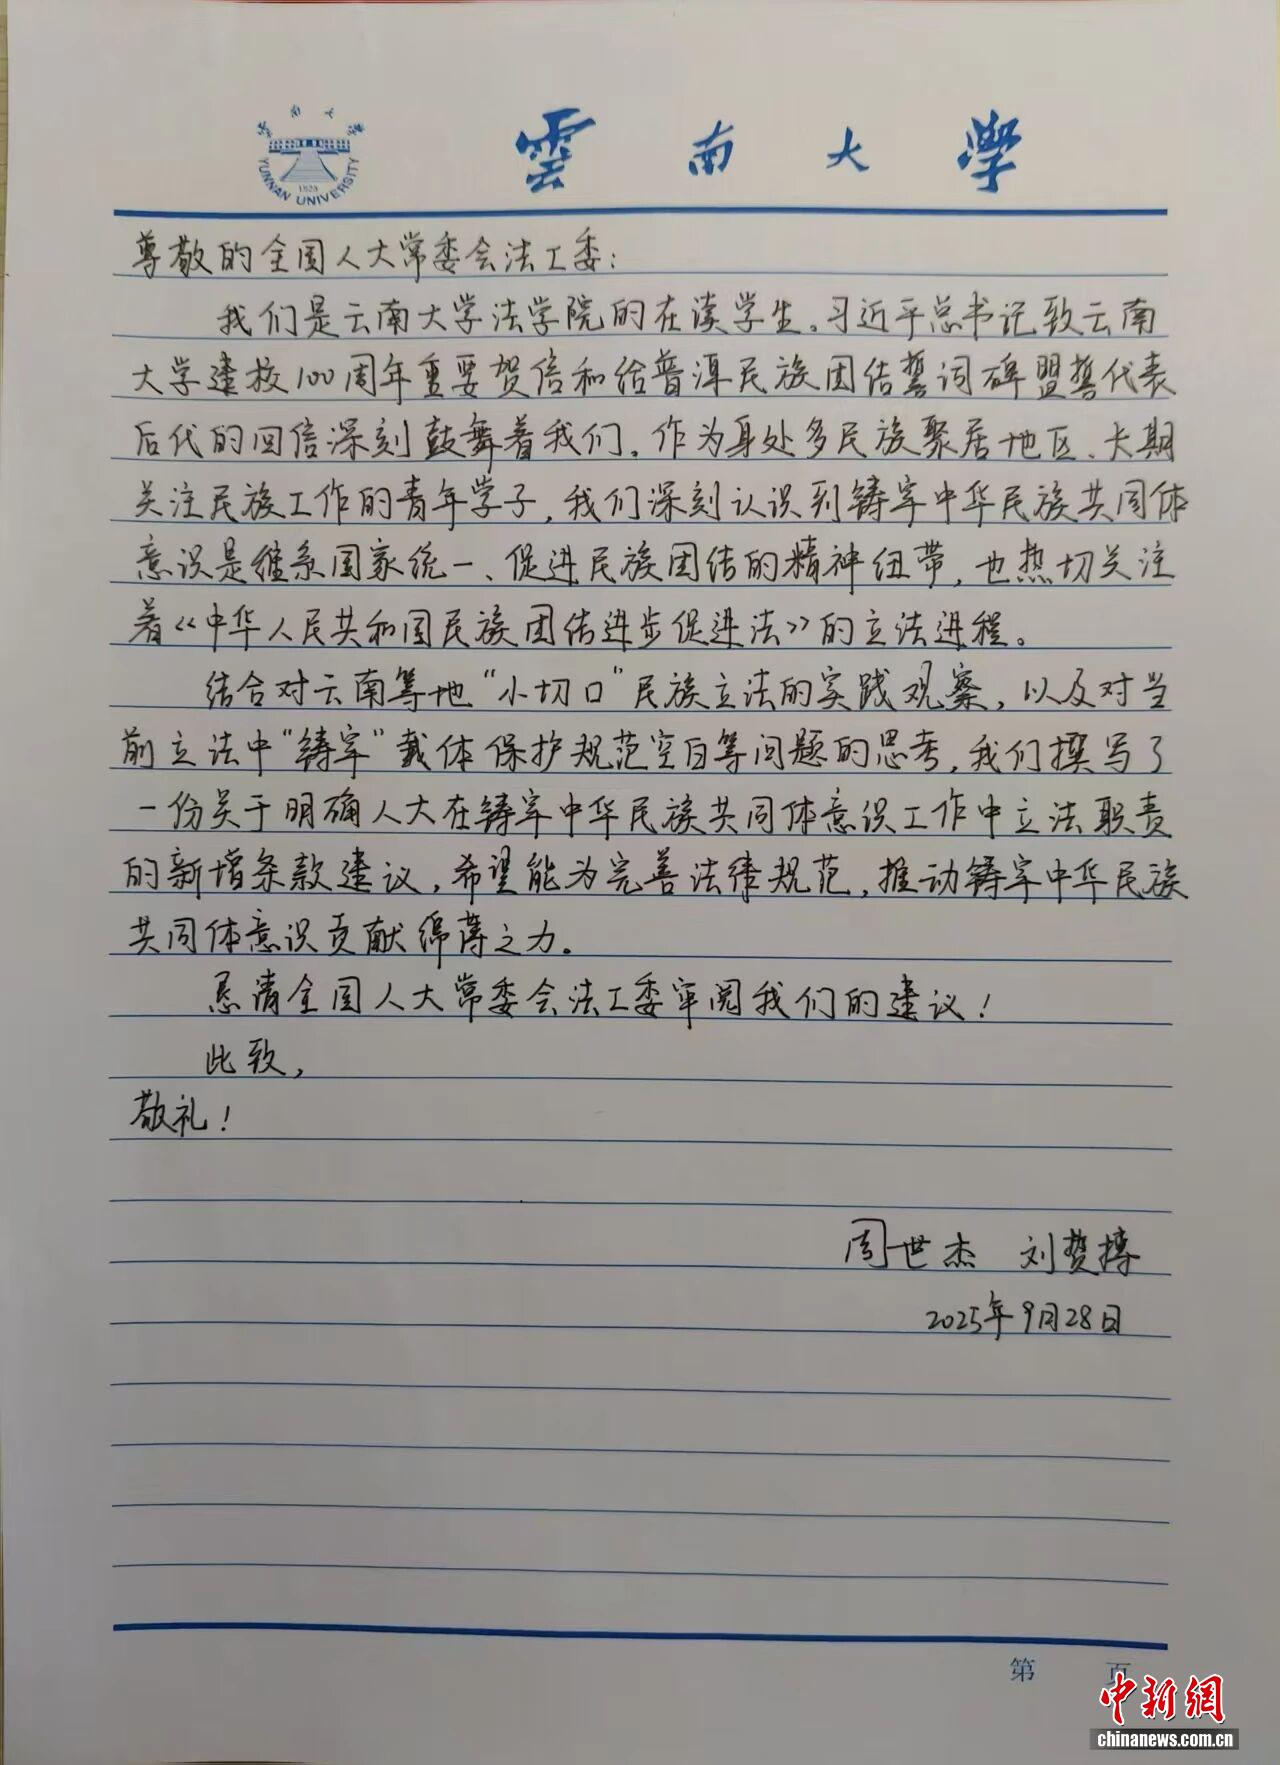 云南大学
YUNNAN UNIVERSITY
1923
雲南大學
尊敬的全国人大常委会法工委：
我们是云南大学法学院的在读学生。习近平总书记致云南
大学建校100周年重要贺信和给普洱民族团结誓词碑盟誓代表
后代的回信深刻鼓舞着我们。作为身处多民族聚居地区、长期
关注民族工作的青年学子，我们深刻认识到铸牢中华民族共同体
意识是维系国家统一、促进民族团结的精神纽带，也热切关注
着《中华人民共和国民族团结进步促进法》的立法进程。
结合对云南等地“小切口”民族立法的实践观察，以及对当
前立法中“铸牢”载体保护规范空白等问题的思考，我们撰写了
一份关于明确人大在铸牢中华民族共同体意识工作中立法职责
的新增条款建议，希望能为完善法律规范，推动铸牢中华民族
共同体意识贡献绵薄之力。
恳请全国人大常委会法工委审阅我们的建议！
此致，
敬礼！
周世杰 刘赞搏
2025年9月28日
第 页
中新网
chinanews.com.cn